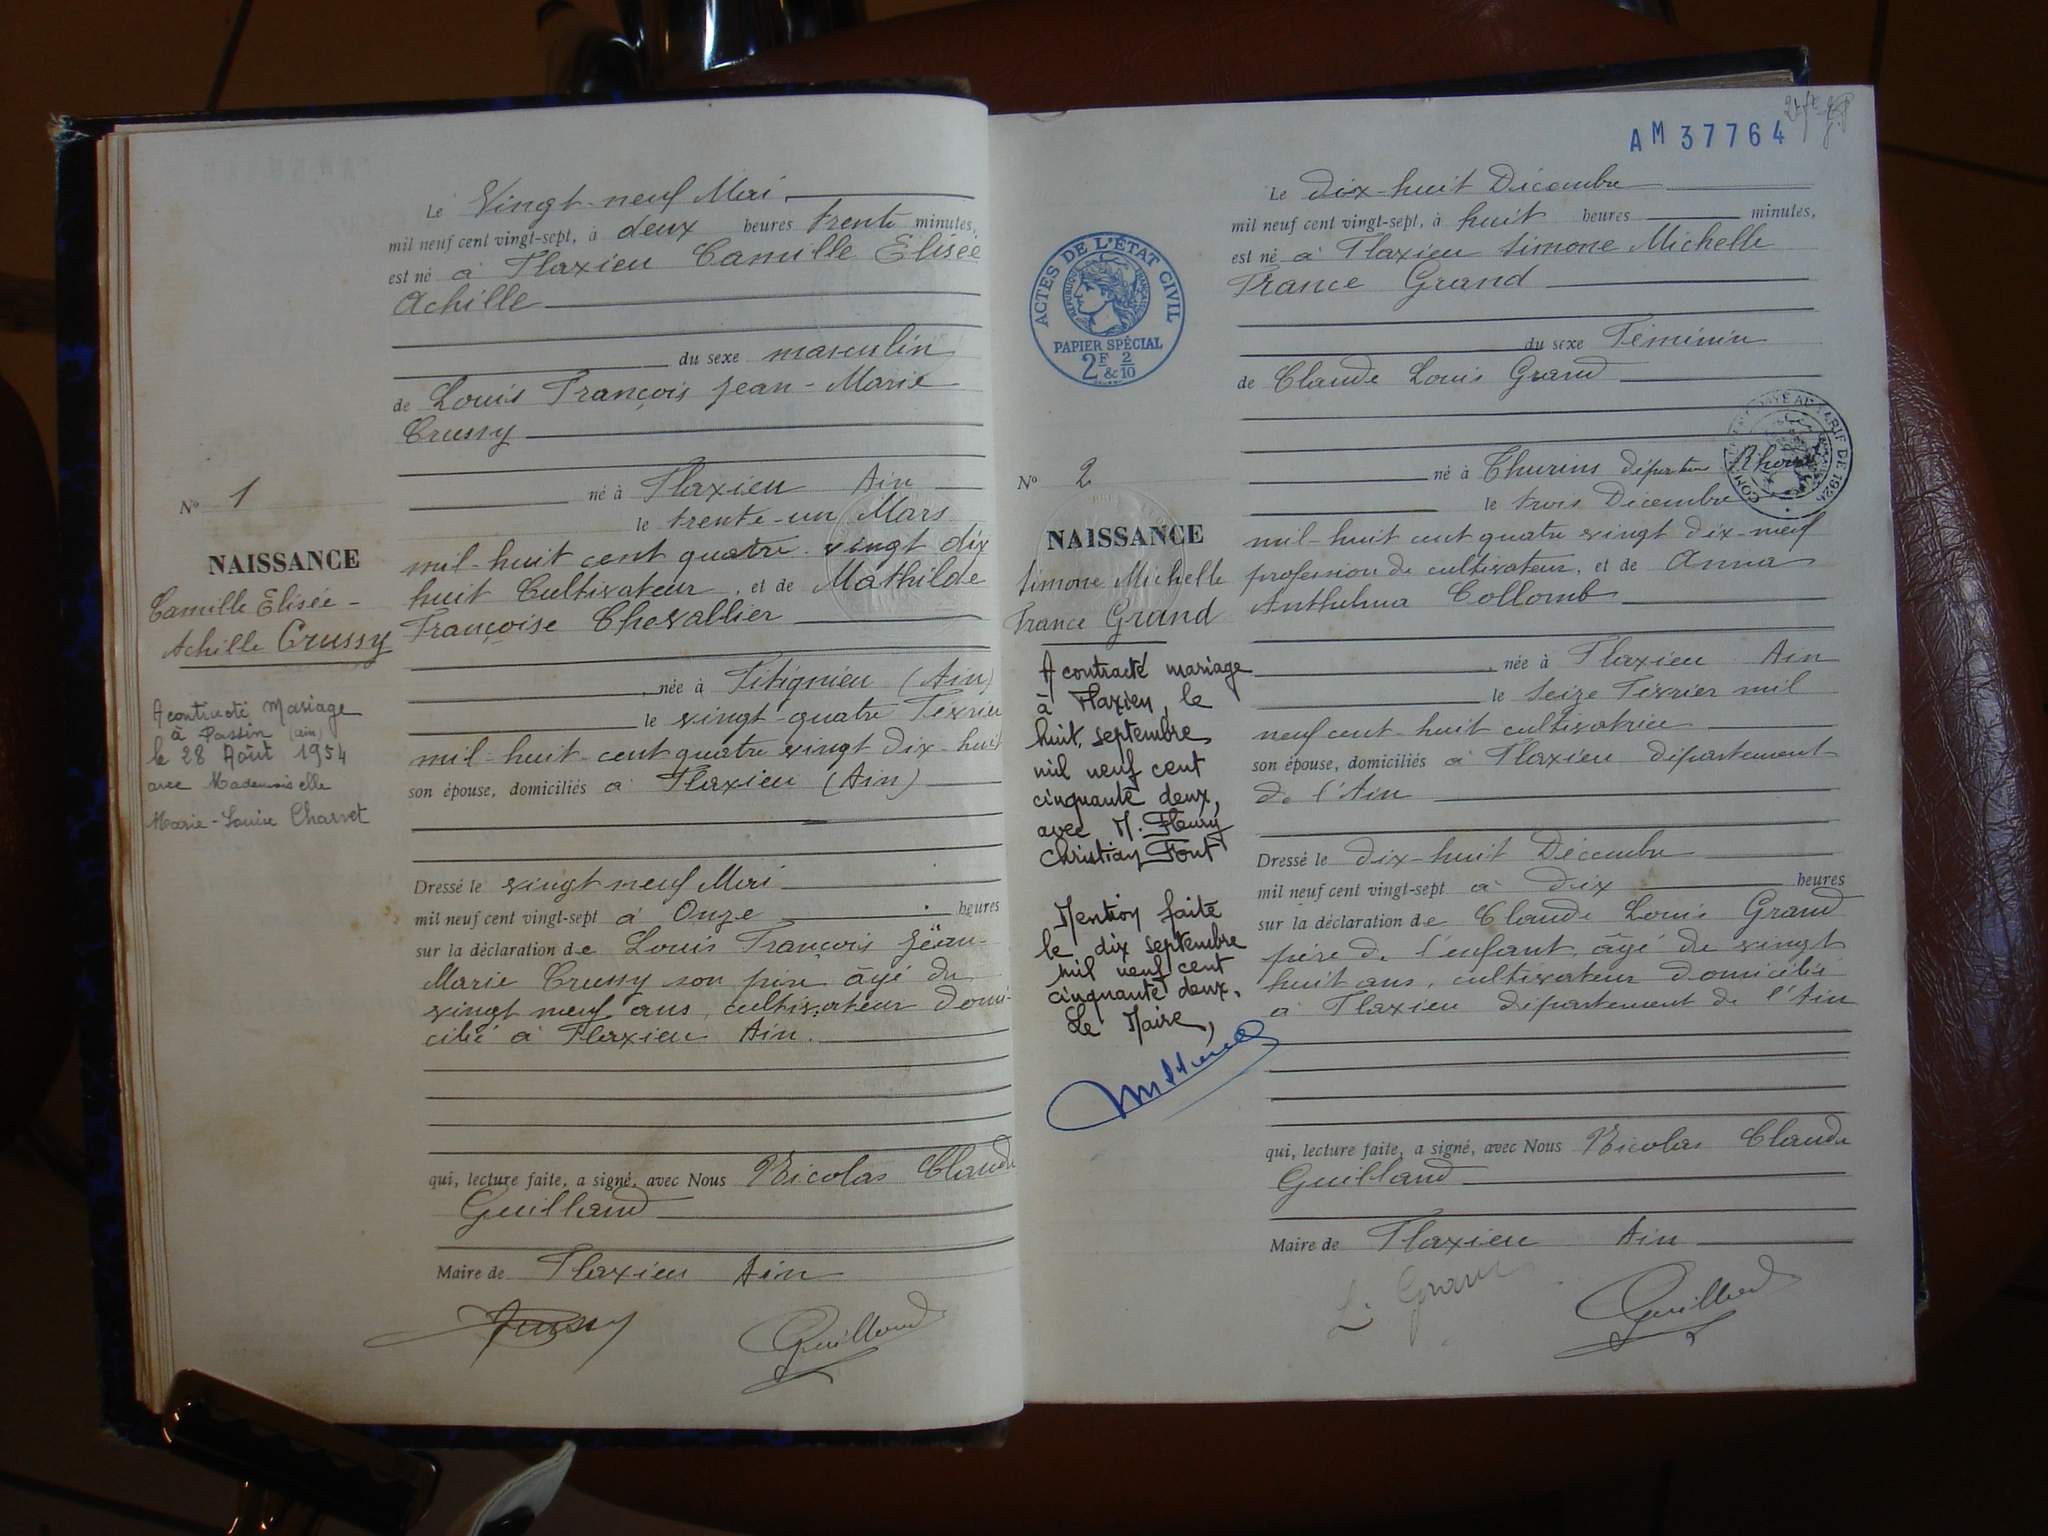 Le Vingt-neuf Mai
mil neuf cent vingt-sept, à deux heures trente minutes,
est né à Flaxieu Camille Elisée
Achille
du sexe masculin
de Louis François Jean-Marie
Crussy
né à Flaxieu Ain
le trente-un Mars
mil-huit cent quatre-vingt dix
huit Cultivateur, et de Mathilde
Françoise Chevallier
, née à Titignieu (Ain)
le vingt-quatre Février
mil-huit-cent quatre vingt dix-huit
son épouse, domiciliés à Flaxieu (Ain)
Dressé le vingt neuf Mai
mil neuf cent vingt-sept à Onze heures
sur la déclaration de Louis François Jean-
Marie Crussy son père âgé de
vingt neuf ans, cultivateur domi-
cilié à Flaxieu Ain.
qui, lecture faite, a signé, avec Nous Nicolas Claude
Guilland
Maire de Flaxieu Ain
Crussy
Guilland
N° 1
NAISSANCE
Camille Elisée-
Achille Crussy
A contracté Mariage
à Passin (ain)
le 28 Août 1954
avec Mademoiselle
Marie-Louise Charvet
AM 37764
Le dix-huit Décembre
mil neuf cent vingt-sept, à huit heures minutes,
est né à Flaxieu Simone Michelle
France Grand
du sexe Féminin
de Claude Louis Grand
né à Thurins département Rhône
le trois Décembre
mil-huit cent quatre vingt dix-neuf
profession de cultivateur, et de Anna
Anthelma Collomb
, née à Flaxieu Ain
le Seize Février mil
neuf cent-huit cultivatrice
son épouse, domiciliés à Flaxieu département
de l'Ain
Dressé le dix-huit Décembre
mil neuf cent vingt-sept à dix heures
sur la déclaration de Claude Louis Grand
père de l'enfant, âgé de vingt
huit ans, cultivateur domicilié
à Flaxieu département de l'Ain
qui, lecture faite, a signé, avec Nous Nicolas Claude
Guilland
Maire de Flaxieu Ain
L. Grand
Guilland
ACTES DE L'ÉTAT CIVIL
RÉPUBLIQUE FRANÇAISE
PAPIER SPÉCIAL
2F & 2/10
TARIF DE 192
N° 2
NAISSANCE
Simone Michelle
France Grand
A contracté mariage
à Flaxieu, le
huit septembre
mil neuf cent
cinquante deux,
avec M. Fleury
Christian Font
Mention faite
le dix septembre
mil neuf cent
cinquante deux.
Le Maire,